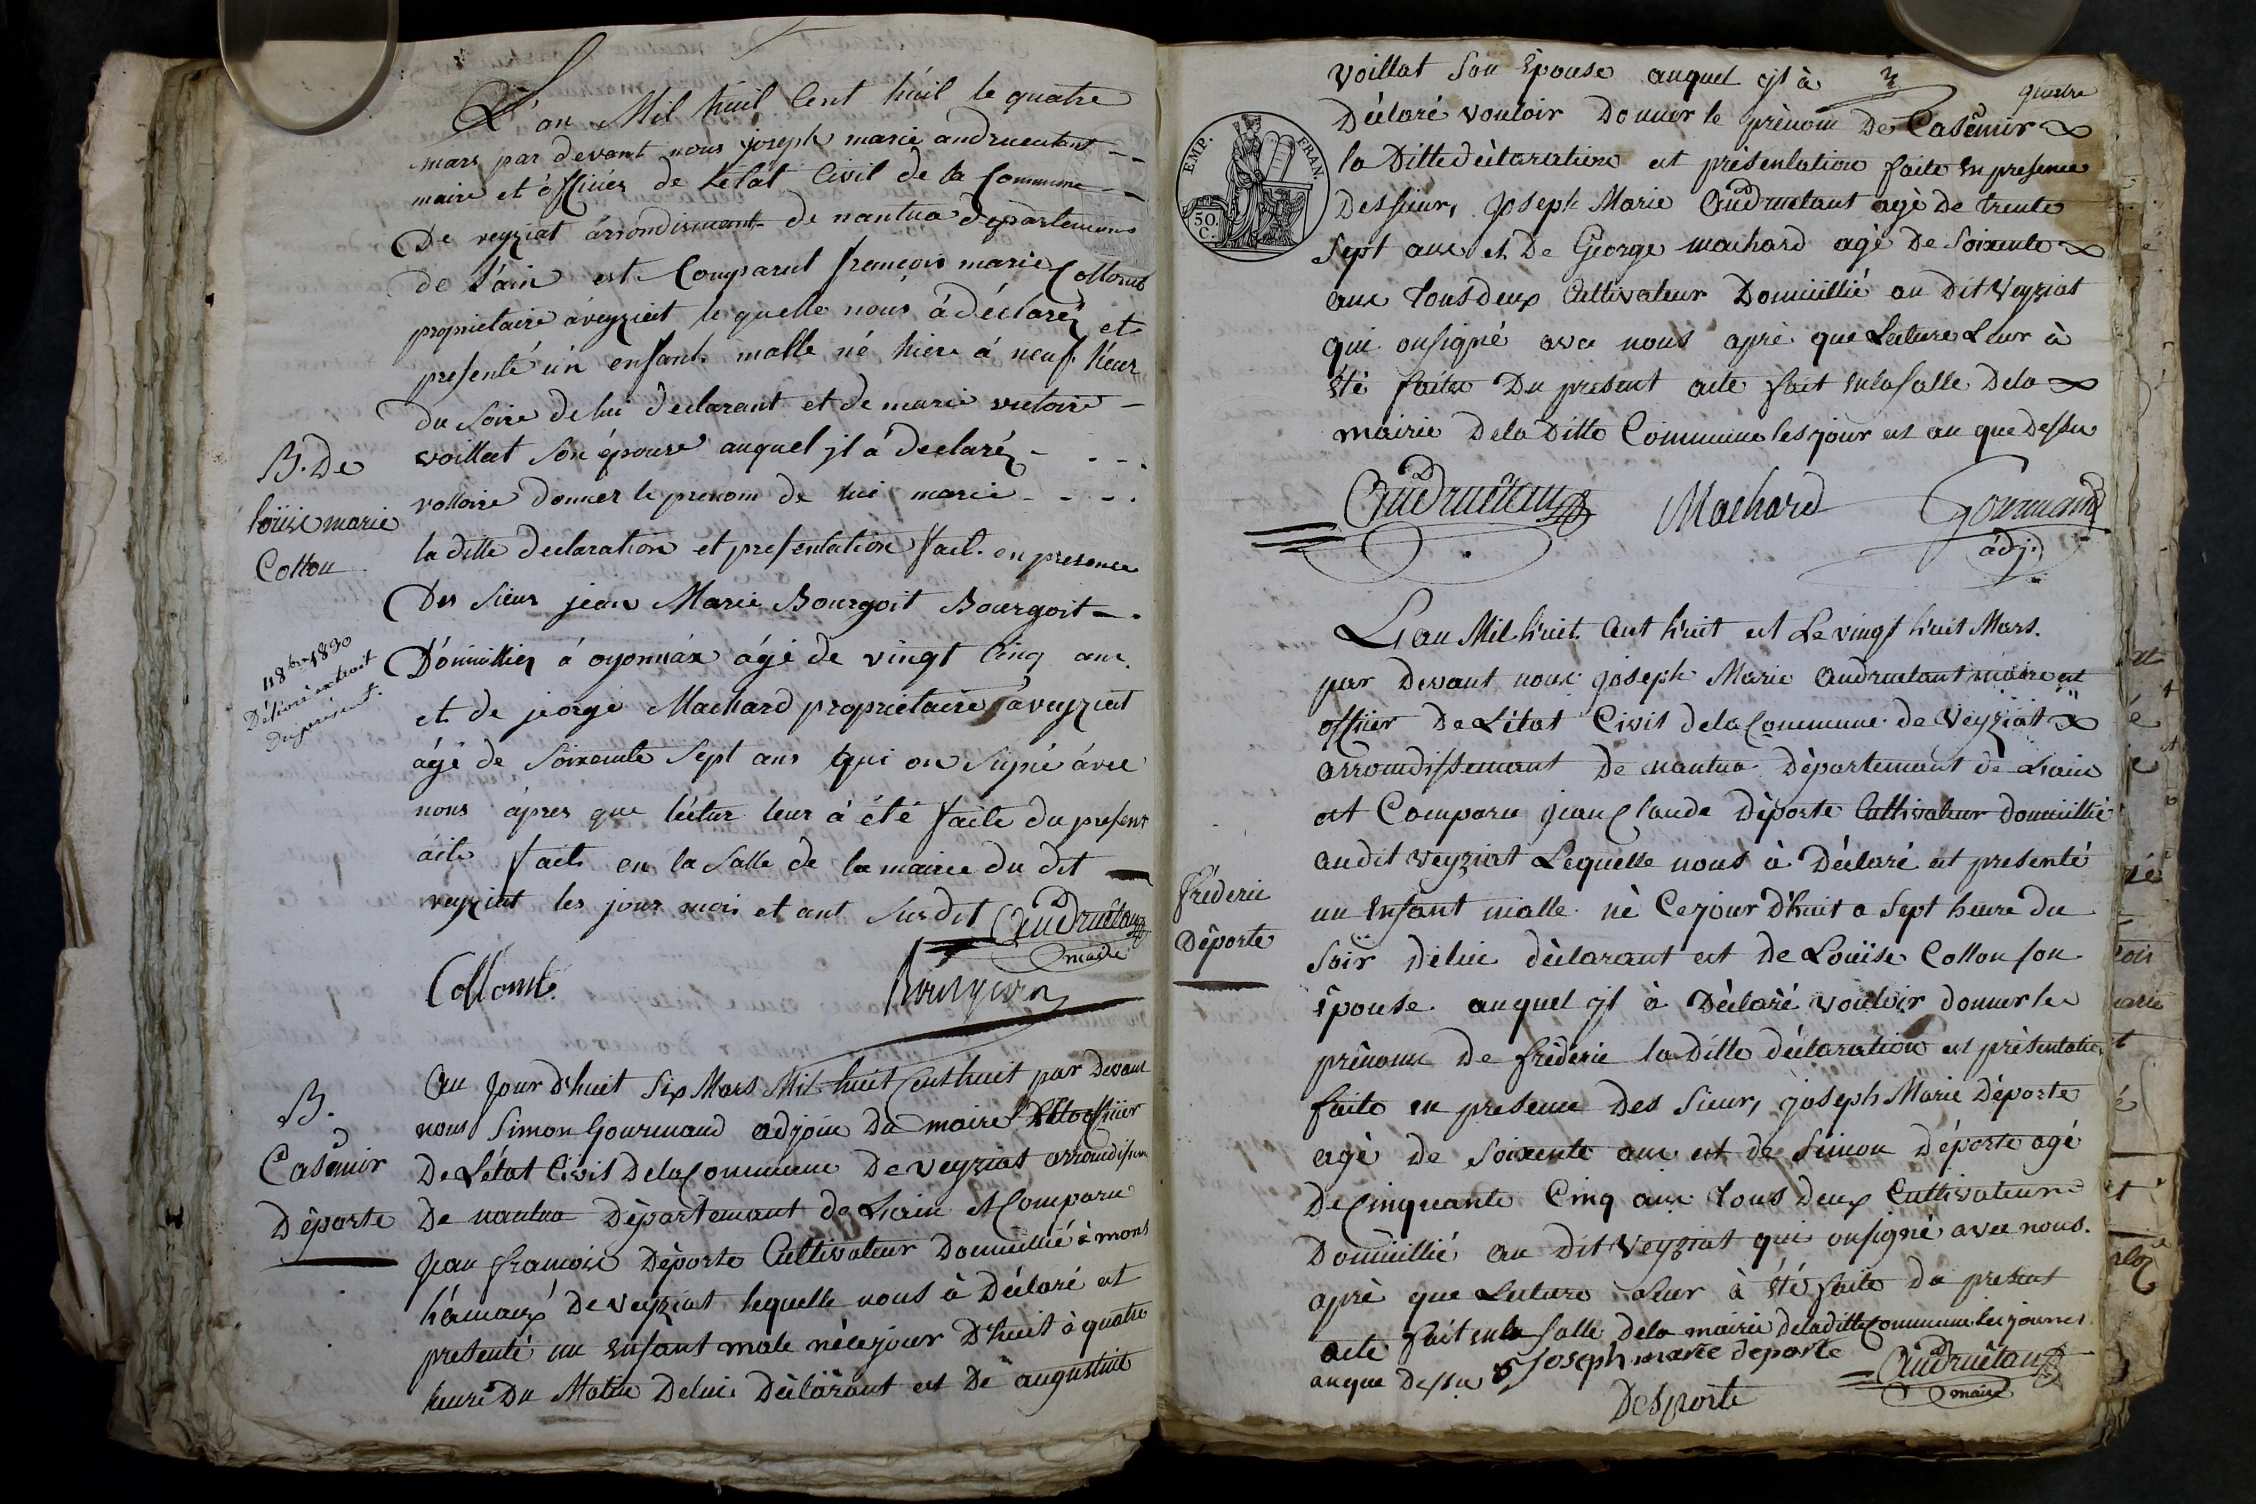 L'an Mil huit Cent huit le quatre
mars par devant nous joseph marie andruetant
maire et officier de Letat Civil de la Commune
De veyziat árrondisment de nantua departement
de l'ain est Comparut françois marie Collomb
propriétaire áveyziat le quelle nous á déclaréz et
presenté un enfant malle né hiere á neuf heur
du Soire de lui declarant et de marie victoire
B. De
louise marie
Collon
voillat Son épouse auquel jl á declaréz
volloire donner le prenom de lui marie
la ditte declaration et presentation fait en presence
Des Sieur jean Marie Bourgoit Bourgoit
Domicilliez á oyonnax ágé de vingt Cinq ans
11 8bre 1890
Délivré extrait
Du présent.
et de jeorge Machard propriétaire áveyziat
ágé de Soixente Sept ans qui on Signé ávec
nous ápres que léctur leur á été faite du present
ácte fait en la Salle de la mairie du dit
veyziat les jour mois et ant Susdit Audruétan
maire
Collomb
B.
Casémir
Déporte
Au Jourd'huit Six Mars Mil huit Cent huit par Devant
nous Simon Gourmand adjoin Du maire officier
De Létat Civis Dela Commune De veyziat arrondisem
De nantua Département de Lain et Comparu
Jean françois Déporte Cultivateur Domicillié à mons
De veyziat lequelle nous à Déclaré et
presenté un Enfant male né ce jour D'huit à quatre
heure Du Matin De lui Déclarant et De augustine
voillat Son Epouse auquel yl à
quatre
Déclaré vouloir Donner le prénom De Casémir
la Ditte déclaration et présentation faite En presence
Des sieur, Joseph Marie Audruetant agé De trente
Sept ans et De George machard agé De Soixente
ans tous deux Cultivateur Domicillié au Dit Veyziat
qui onsigné avec nous aprè que Lecture Leur à
Eté faitte Du present acte fait enla salle Dela
mairie Dela Ditte Commune les jour et an que Dessu
EMP. FRAN.
50
C.
Audruétan Machard Gourmand
adj.
L'an Mil huit Cent huit et Le vingt huit Mars.
par Devant nous joseph Marie Audruetant maire et
officier De L'état Civis dela Commune de Veyziat
arrondissemant De nantua Département de Lain
et Comparu jean Claude Déporte Cultivateur Domicillié
audit veyziat Lequelle nous à Déclaré et presenté
fréderic
Déporte
un Enfant malle né Ce jour D'huit a Sept heure Du
Soir Delui déclarant et de Louïse Collon son
Epouse auquel yl à Déclaré vouloir donner le
prénoms De fréderic la Ditte déclaration et présentation
faite en presence Des Sieur, joseph Marie Déporte
agé de Soixente ans et de Simon Déporte agé
De Cinquante Cinq ans Tous deux Cultivateur
Domicillié au dit Veyziat qui onsigné avec nous.
aprè que Lecture Leur à Eté faite Du present
acte fait en la salle Dela mairie deladitte Commune les jour et
anque Dessu Joseph marie deporte Audruétan
maire
Desporte